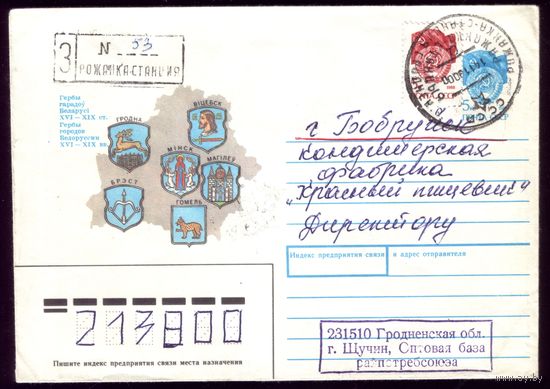 З
N 53
РОЖАНКА-СТАНЦИЯ
Гербы
гарадоў
Беларусі
XVI – XIX ст.
Гербы
городов
Белоруссии
XVI – XIX вв.
ГРОДНА
ВІЦЕБСК
МІНСК
МАГІЛЁЎ
БРЭСТ
ГОМЕЛЬ
г Бобруйск
кондитерская
фабрика
„Красный пищевик"
Директору
Индекс предприятия связи и адрес отправителя
213800
Пишите индекс предприятия связи места назначения
231510 Гродненская обл.
г. Щучин, Оптовая база
райпотребсоюза